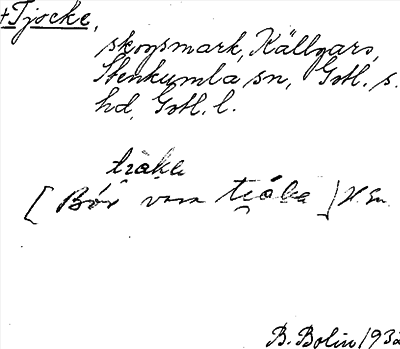 +Tjocke,
skogsmark, Källgårs,
Stenkumla sn, Gotl. s.
hd, Gotl. l.
[Bör vara
B. Bolin 1932